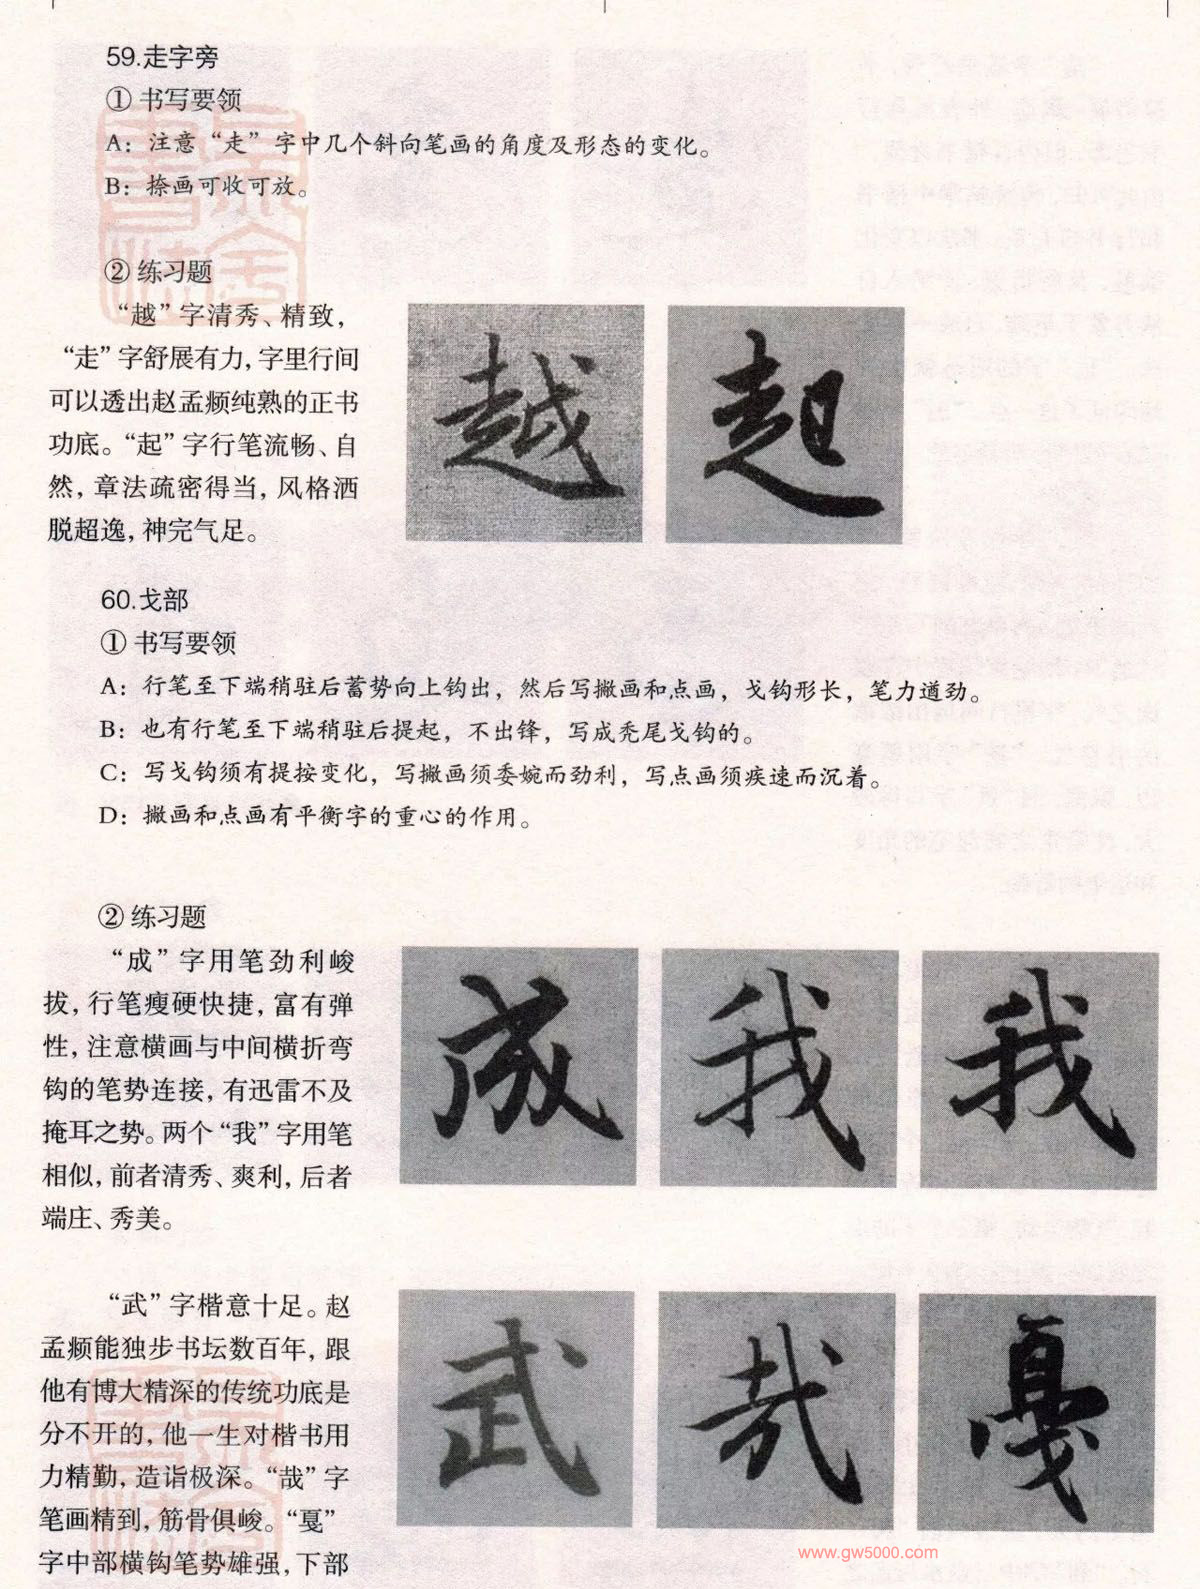 59.走字旁
① 书写要领
A：注意“走”字中几个斜向笔画的角度及形态的变化。
B：捺画可收可放。
② 练习题
“越”字清秀、精致，
“走”字舒展有力，字里行间
可以透出赵孟頫纯熟的正书
功底。“起”字行笔流畅、自
然，章法疏密得当，风格洒
脱超逸，神完气足。
越
起
60.戈部
① 书写要领
A：行笔至下端稍驻后蓄势向上钩出，然后写撇画和点画，戈钩形长，笔力遒劲。
B：也有行笔至下端稍驻后提起，不出锋，写成秃尾戈钩的。
C：写戈钩须有提按变化，写撇画须委婉而劲利，写点画须疾速而沉着。
D：撇画和点画有平衡字的重心的作用。
② 练习题
“成”字用笔劲利峻
拔，行笔瘦硬快捷，富有弹
性，注意横画与中间横折弯
钩的笔势连接，有迅雷不及
掩耳之势。两个“我”字用笔
相似，前者清秀、爽利，后者
端庄、秀美。
成
我
我
“武”字楷意十足。赵
孟頫能独步书坛数百年，跟
他有博大精深的传统功底是
分不开的，他一生对楷书用
力精勤，造诣极深。“哉”字
笔画精到，筋骨俱峻。“戛”
字中部横钩笔势雄强，下部
武
哉
戛
www.gw5000.com